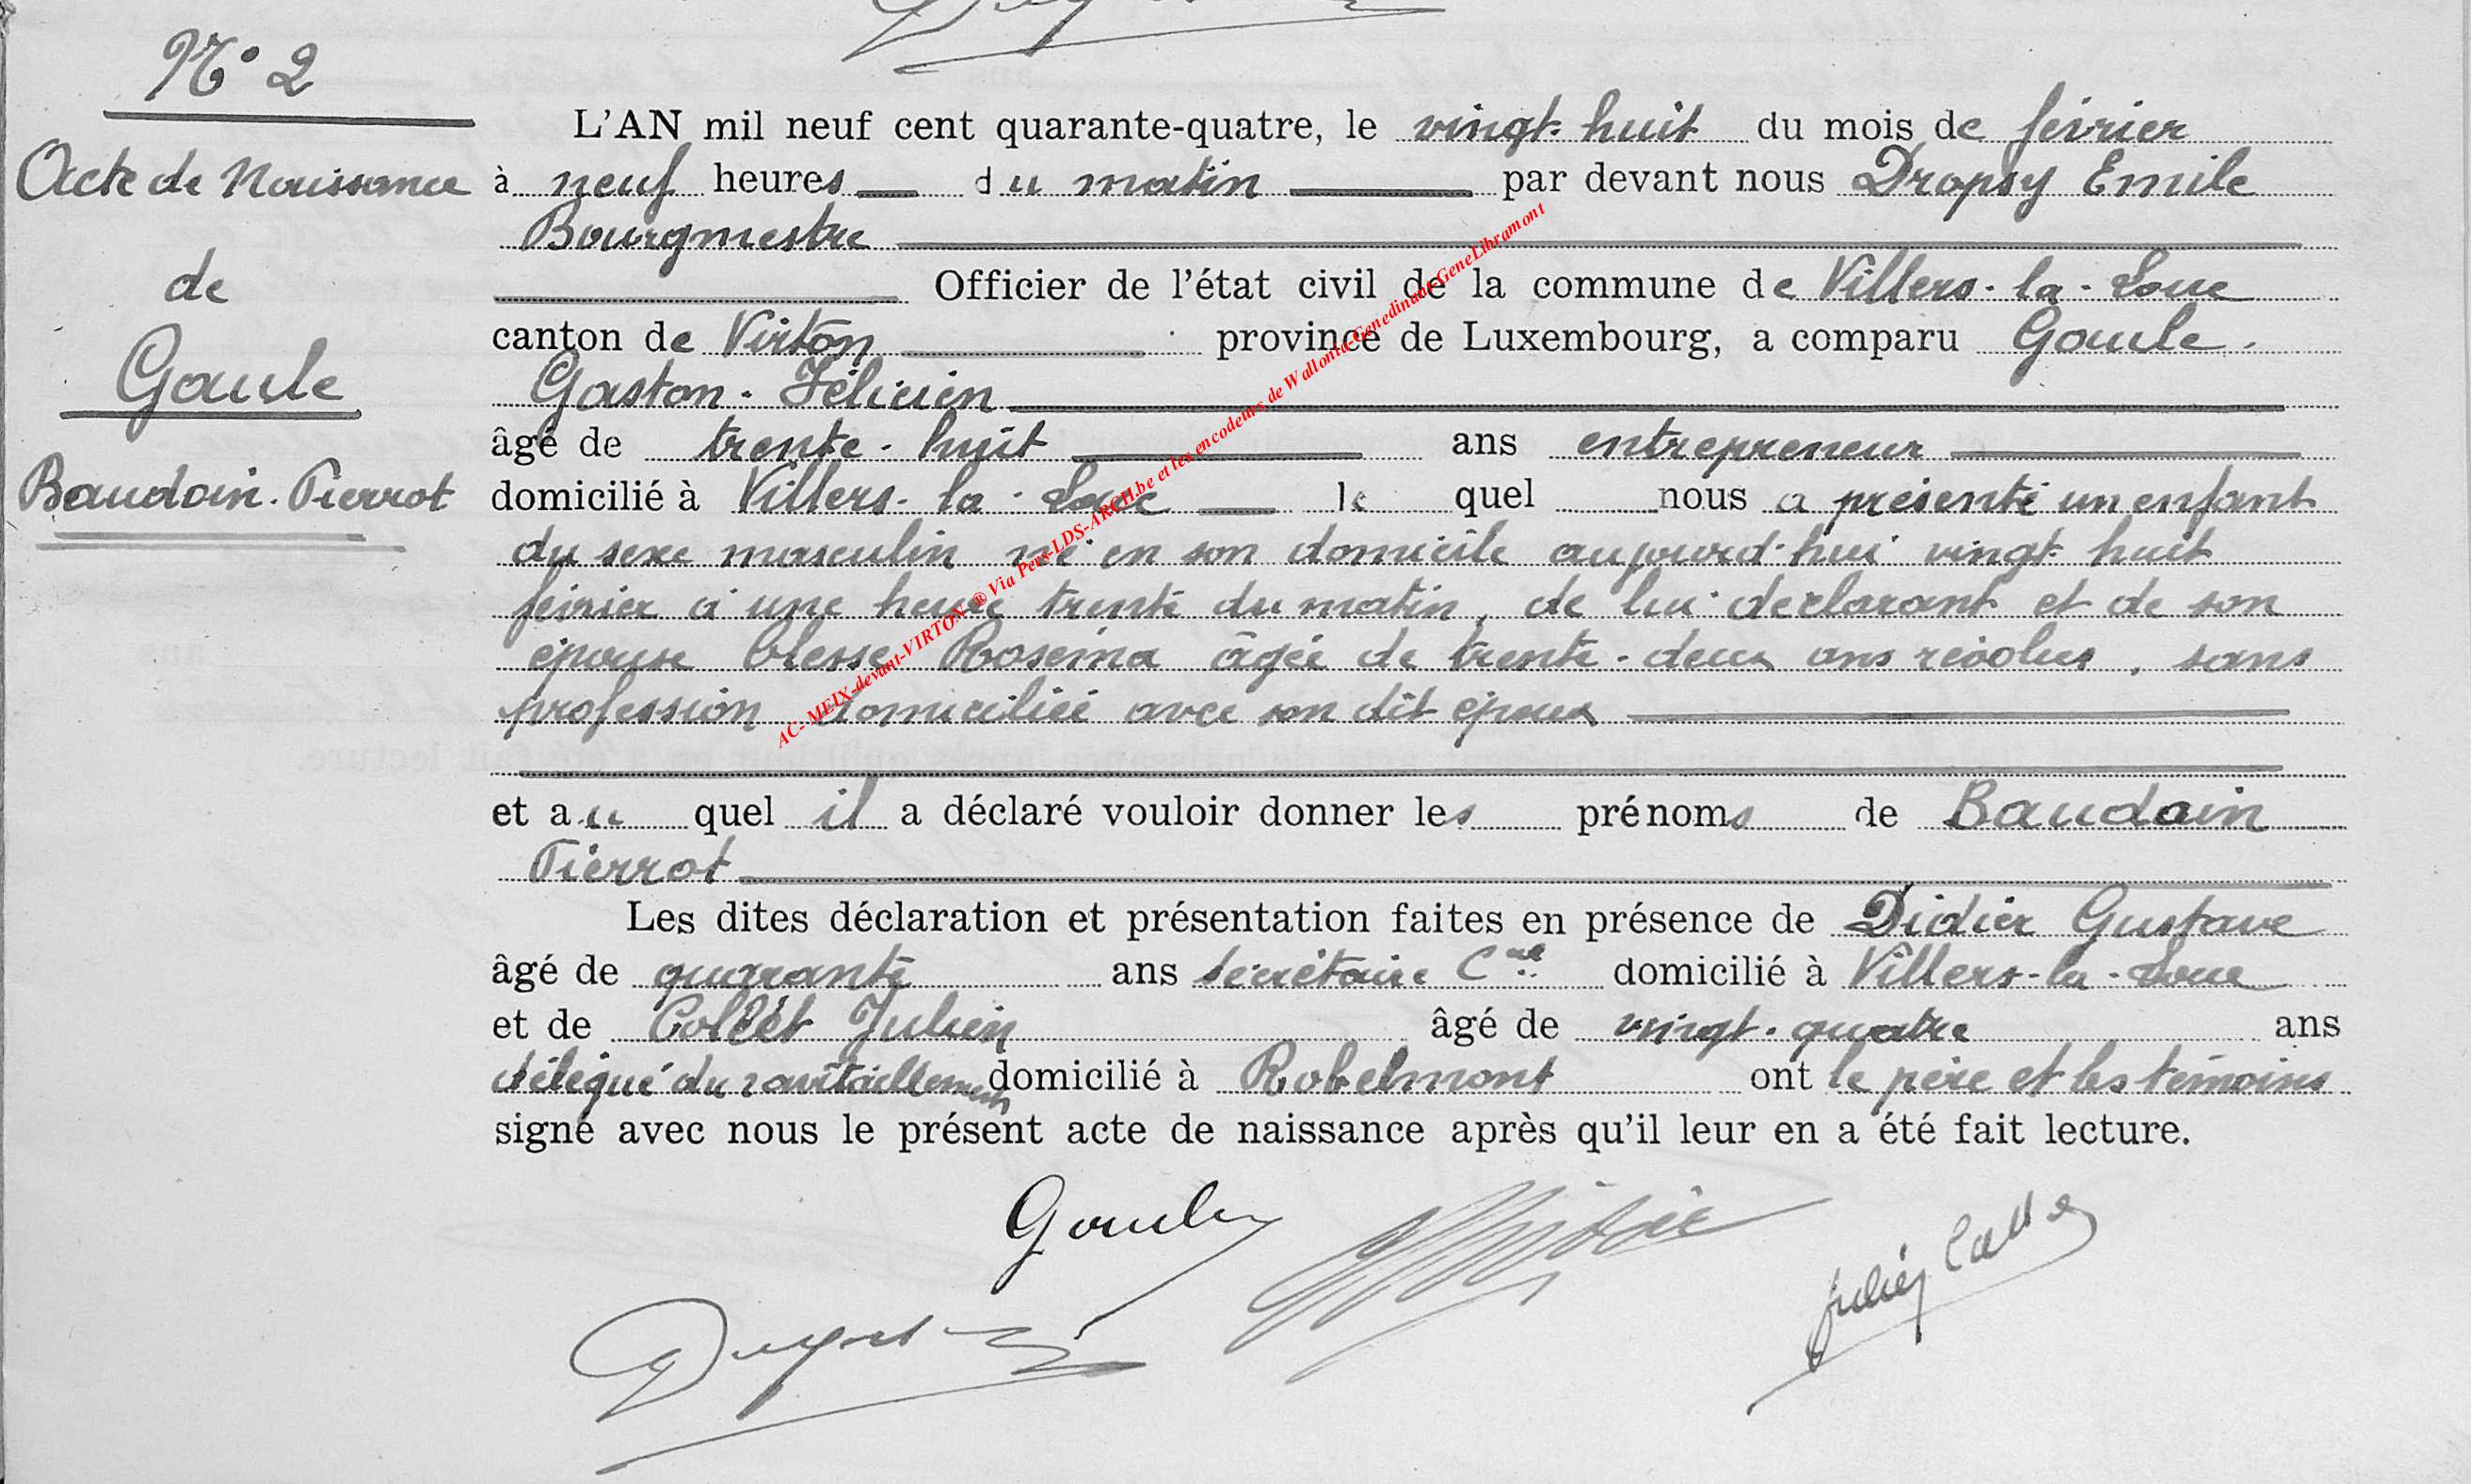 N° 2
Acte de Naissance
de
Goule
Baudoin-Pierrot
L'AN mil neuf cent quarante-quatre, le vingt-huit du mois de février
à neuf heures du matin par devant nous Dropsy Emile
Bourgmestre
Officier de l'état civil de la commune de Villers-la-Loue
canton de Virton province de Luxembourg, a comparu Goule.
Gaston-Félicien
âgé de trente-huit ans entrepreneur
domicilié à Villers-la-Loue lequel nous a présenté un enfant
du sexe masculin né en son domicile aujourd'hui vingt-huit
février à une heure trente du matin, de lui déclarant et de son
épouse Rosema âgée de trente-deux ans révolus, sans
profession domiciliée avec son dit époux
et au quel il a déclaré vouloir donner les prénoms de Baudoin
Pierrot
Les dites déclaration et présentation faites en présence de Didier Gustave
âgé de quarante ans secrétaire Cal domicilié à Villers-la-Loue
et de Collet Julien âgé de vingt-quatre ans
délégué du ravitaillement domicilié à Robelmont ont le père et les témoins
signé avec nous le présent acte de naissance après qu'il leur en a été fait lecture.
Goule
Didier
Julien Collet
AC-MEIX-devant-VIRTON ® Via Pers-LDS-ARCH.be et les encodeurs de Wallonia-Genedinant-GeneLibramont